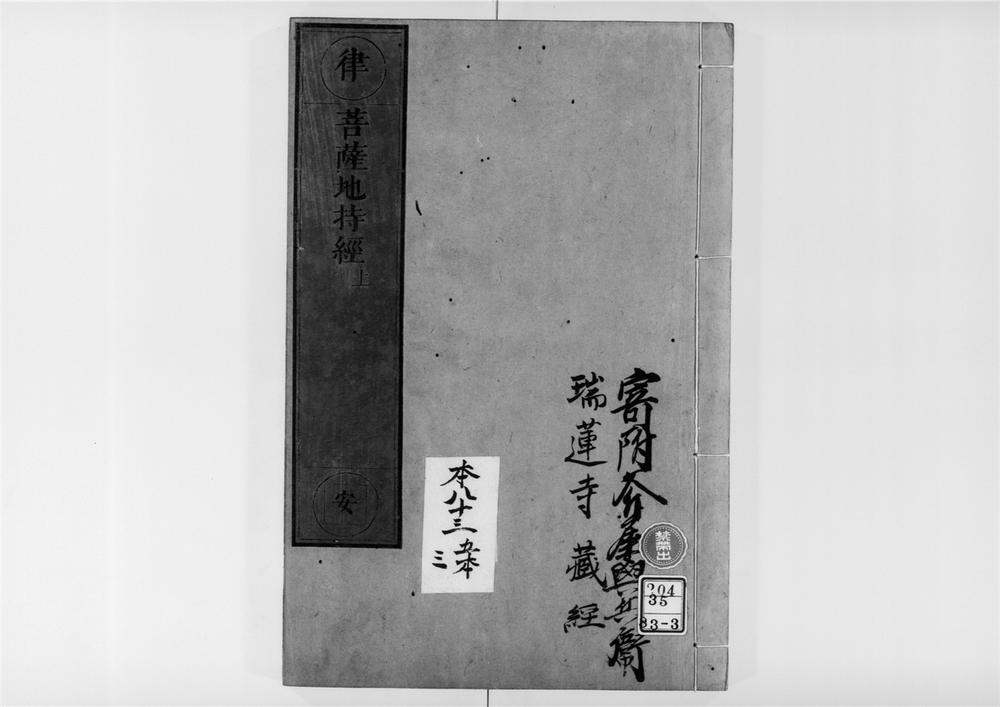 律
菩薩地持經上
安
本八十三 五本
三
寄附
瑞蓮寺藏經
禁帶出
204
35
83-3